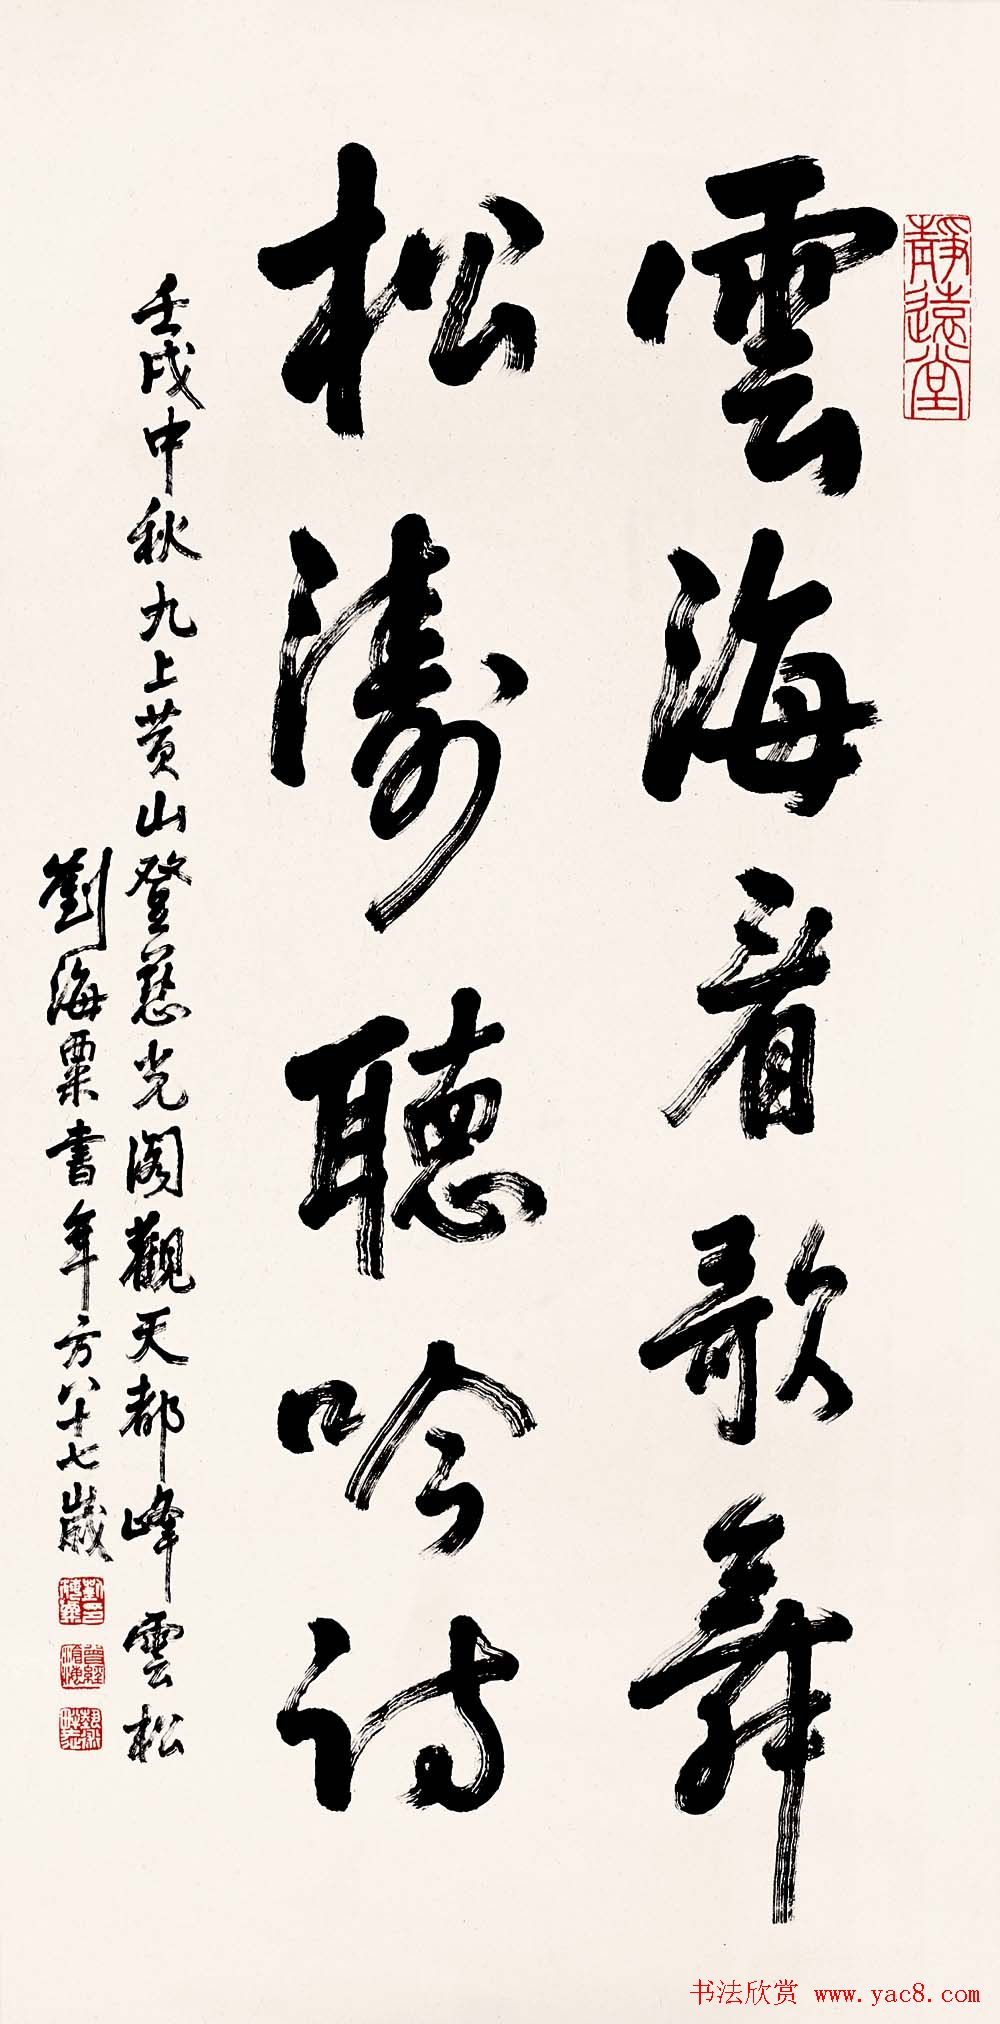 靜遠堂
雲海看歌舞
松濤聽吟诗
壬戌中秋九上黄山登慈光阁觀天都峰雲松
劉海粟書年方八十七歲
曾經滄海
书法欣赏 www.yac8.com